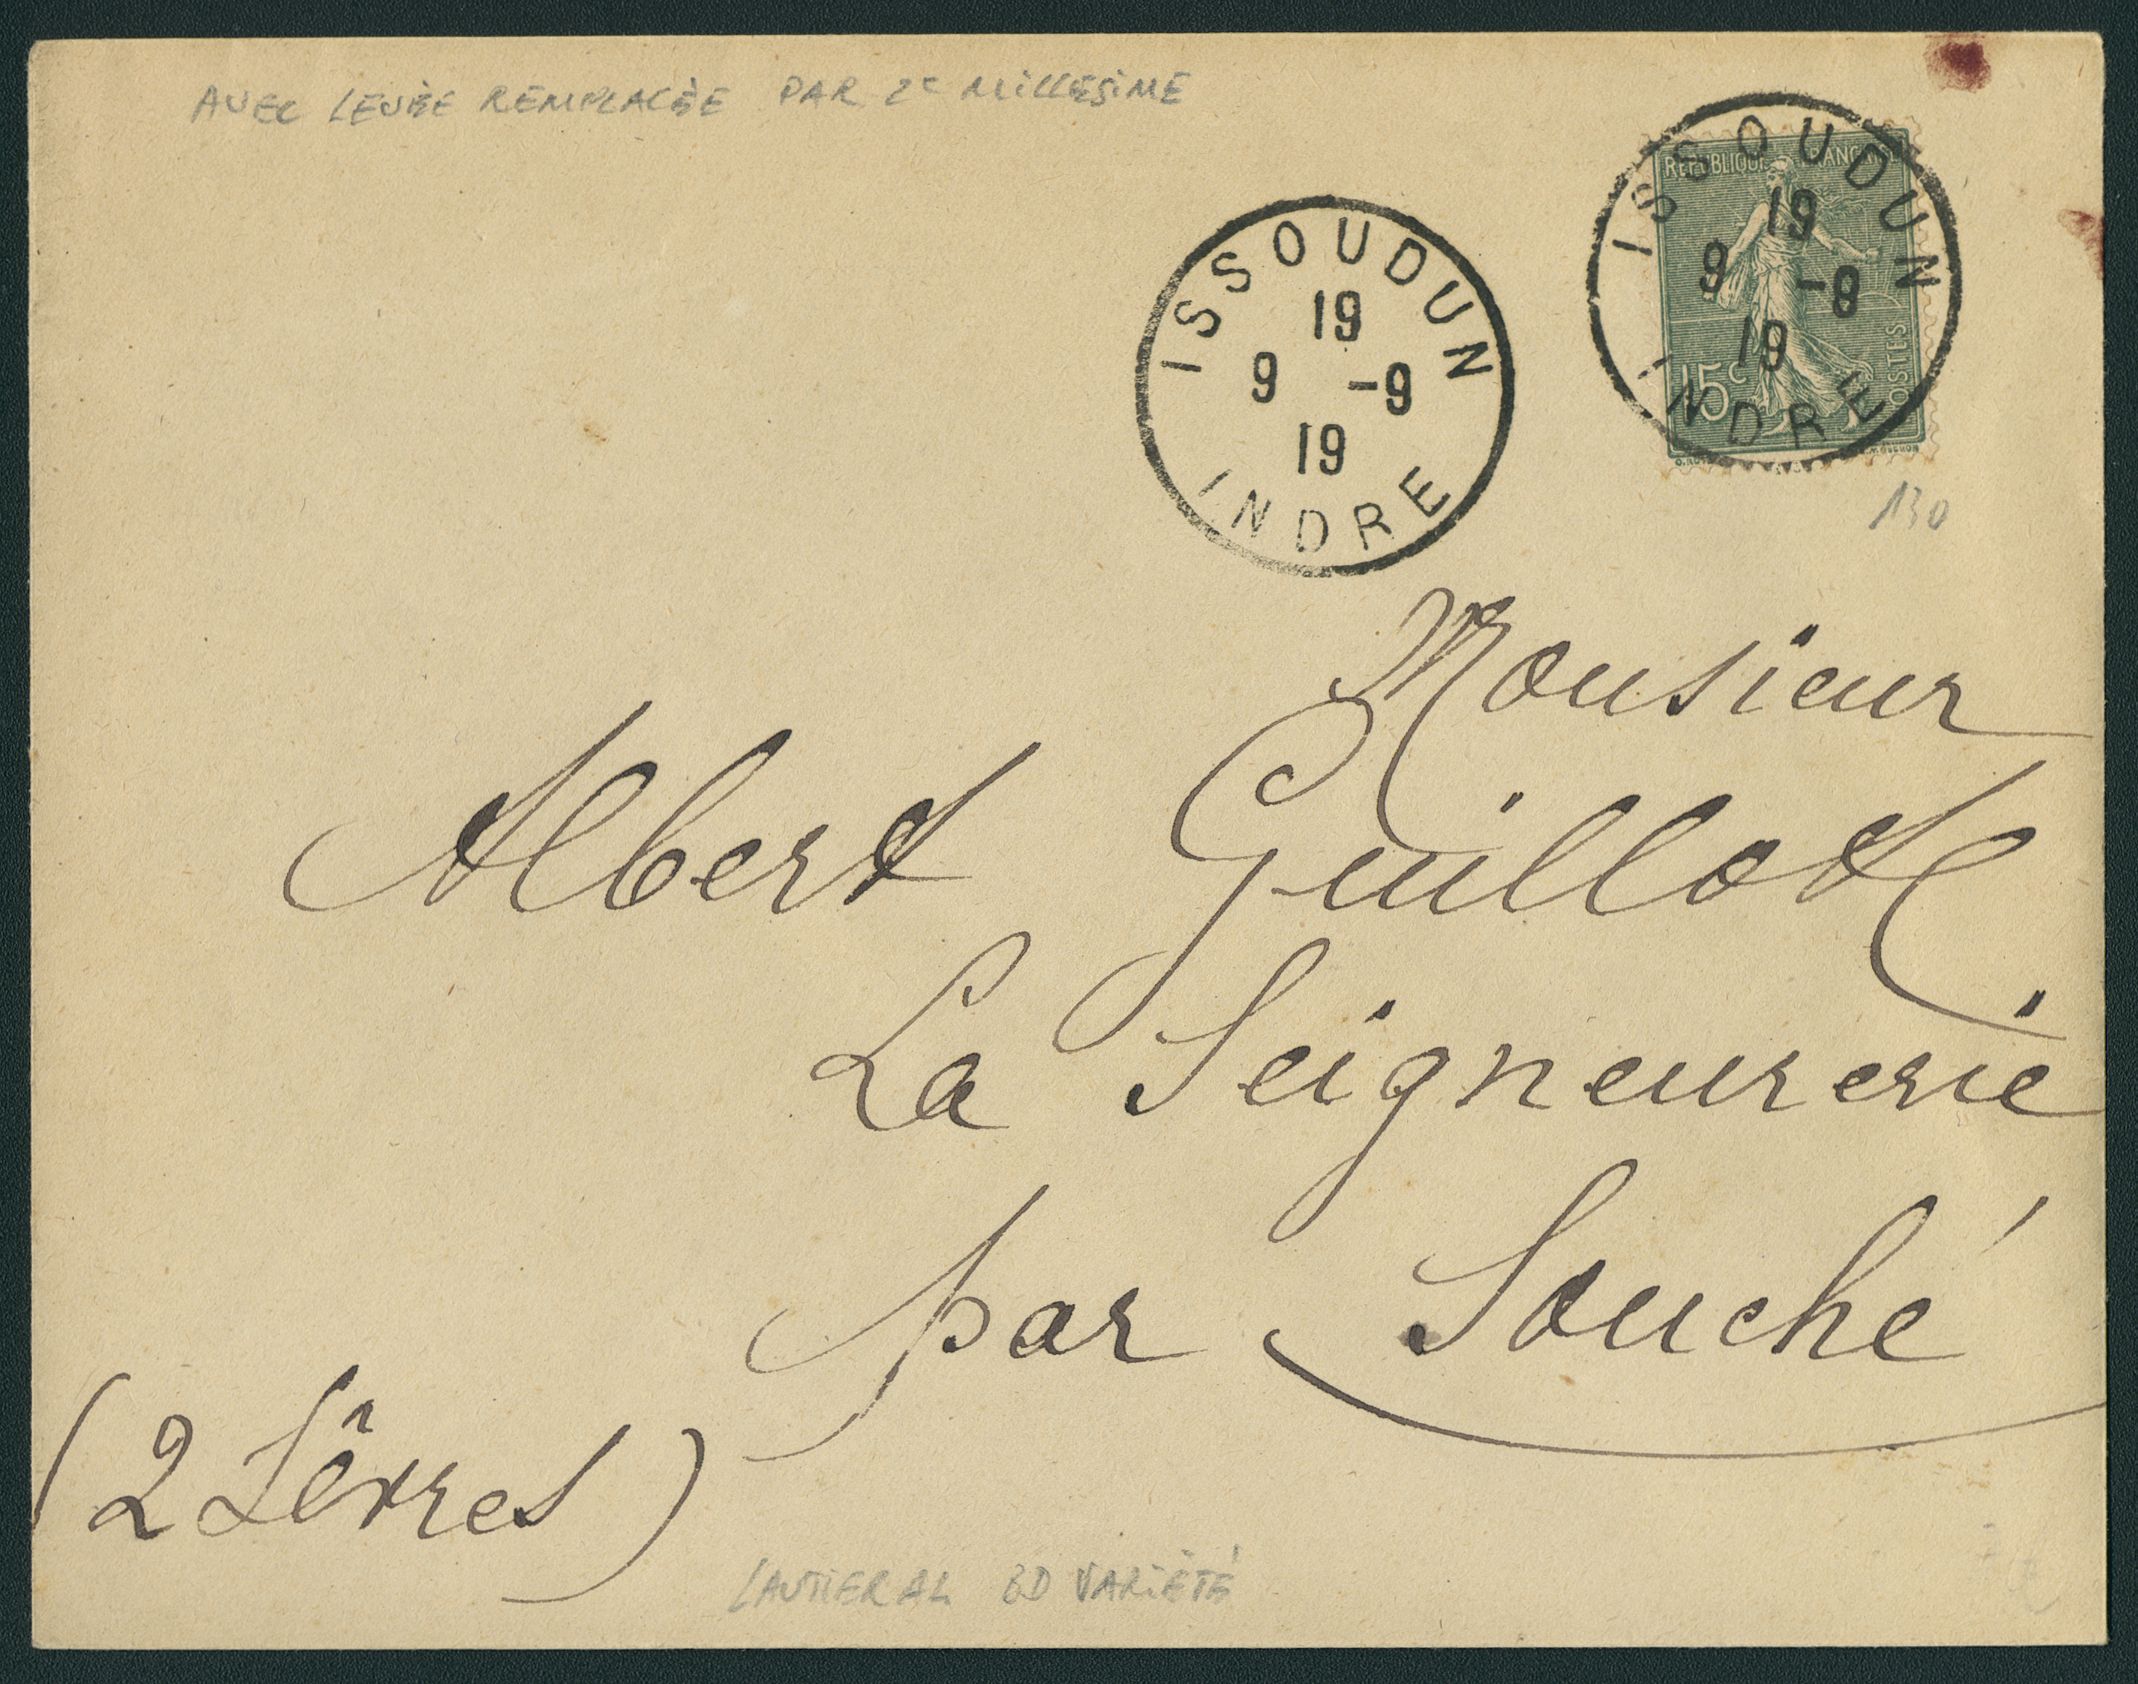 AVEC LEVÉE REMPLACÉE PAR 2e MILLESIME
ISSOUDUN
19
9 -9
19
INDRE
REPUBLIQUE FRANCAISE
15c
POSTES
ISSOUDUN
19
9 -9
19
INDRE
130
Monsieur
Albert Guillot
La Seigneurerie
par Souché
(2 Sèvres)
VARIÉTÉ